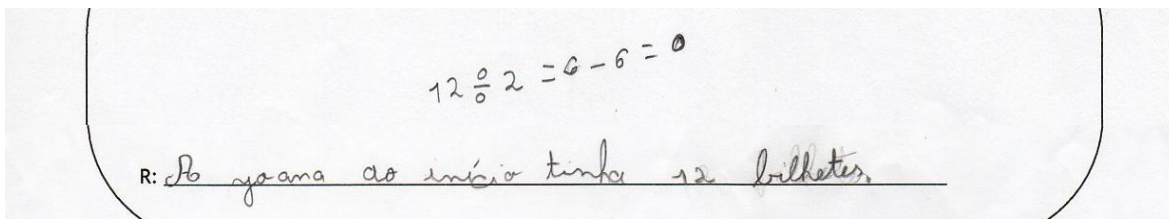 12 ÷ 2 = 6 - 6 = 0
R: A joana ao início tinha 12 bilhetes.